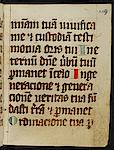 miam tua uiuifica
me ⁊ custodia testi
monia oris tui In e
ternum dne ubum tuu
pmanet i celo In ge
neratione ⁊ genera
cionem ueritas tua fu
dasti terra ⁊ pmanet
Ordinacione tua